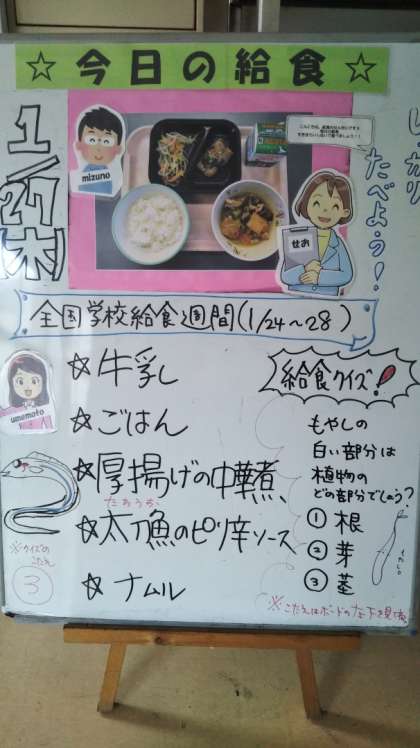 ☆今日の給食☆
1/27木
しっかり
たべよっ!
mizuno
せお
全国学校給食週間(1/24〜28)
umemoto
☆牛乳
☆ごはん
☆厚揚げの中華煮
たちうお
☆太刀魚のピリ辛ソース
☆ナムル
給食クイズ!
もやしの
白い部分は
植物の
どの部分でしょう?
①根
②芽
③茎
もやし
※こたえはボードの左下を見てね
※クイズの
こたえ
③